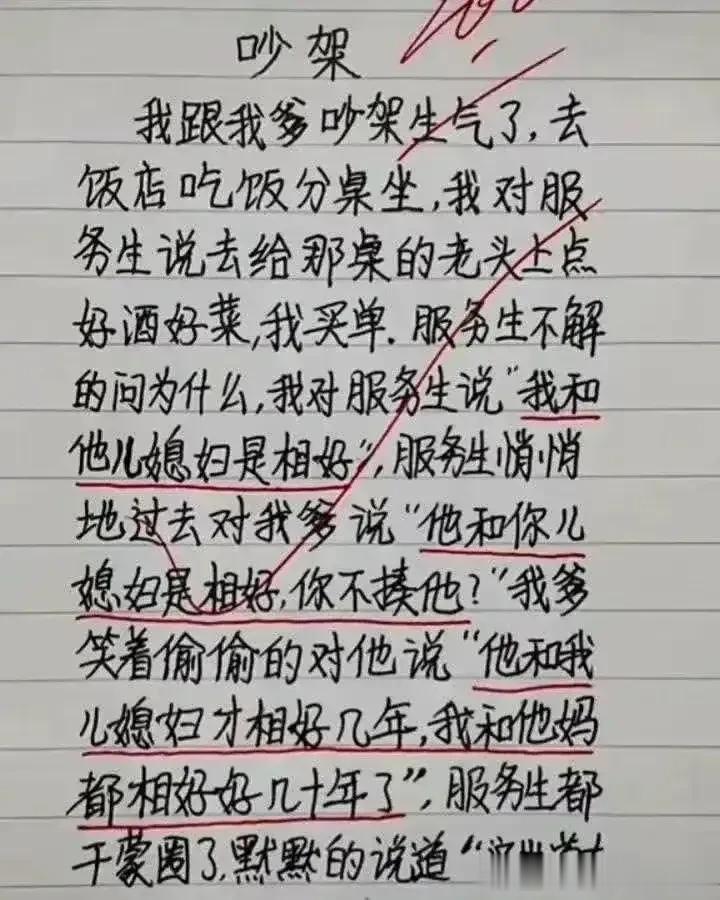 吵架
我跟我爹吵架生气了，去
饭店吃饭分桌坐，我对服
务生说去给那桌的老头上点
好酒好菜，我买单．服务生不解
的问为什么，我对服务生说“我和
他儿媳妇是相好”，服务生悄悄
地过去对我爹说“他和你儿
媳妇是相好，你不揍他？”我爹
笑着偷偷的对他说“他和我
儿媳妇才相好几年，我和他妈
都相好好几十年了”，服务生都
干蒙圈了，默默的说道“